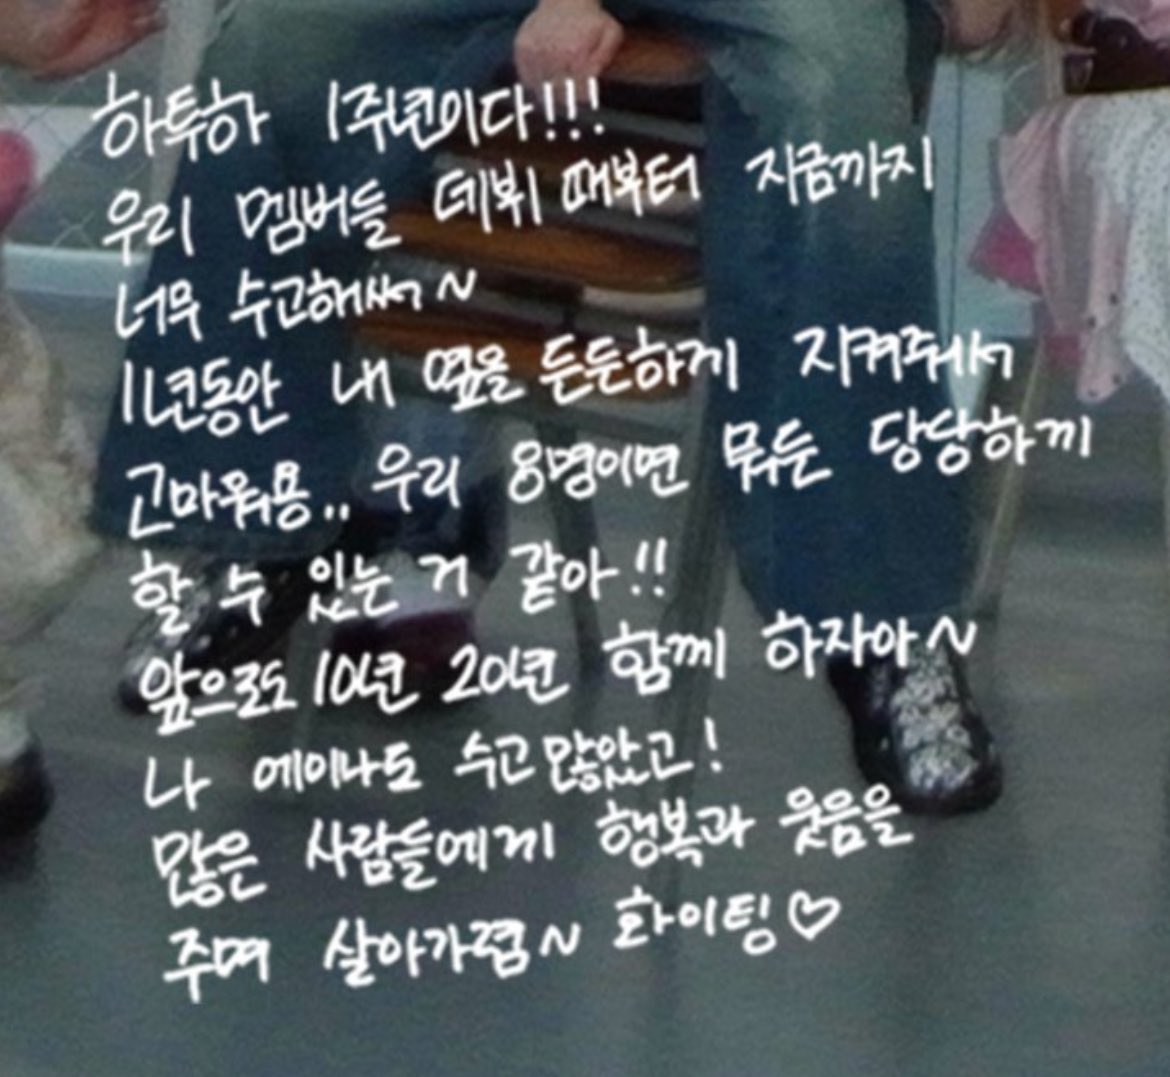 하투하 1주년이다!!!
우리 멤버들 데뷔 때부터 지금까지
너무 수고해써~
1년동안 내 옆을 든든하게 지켜주서
고마워용.. 우리 8명이면 뭐든 당당하게
할 수 있는 거 같아!!
앞으로도 10년 20년 함께 하자아~
나 에이나도 수고 많았고!
많은 사람들에게 행복과 웃음을
주며 살아가렴~ 화이팅♡